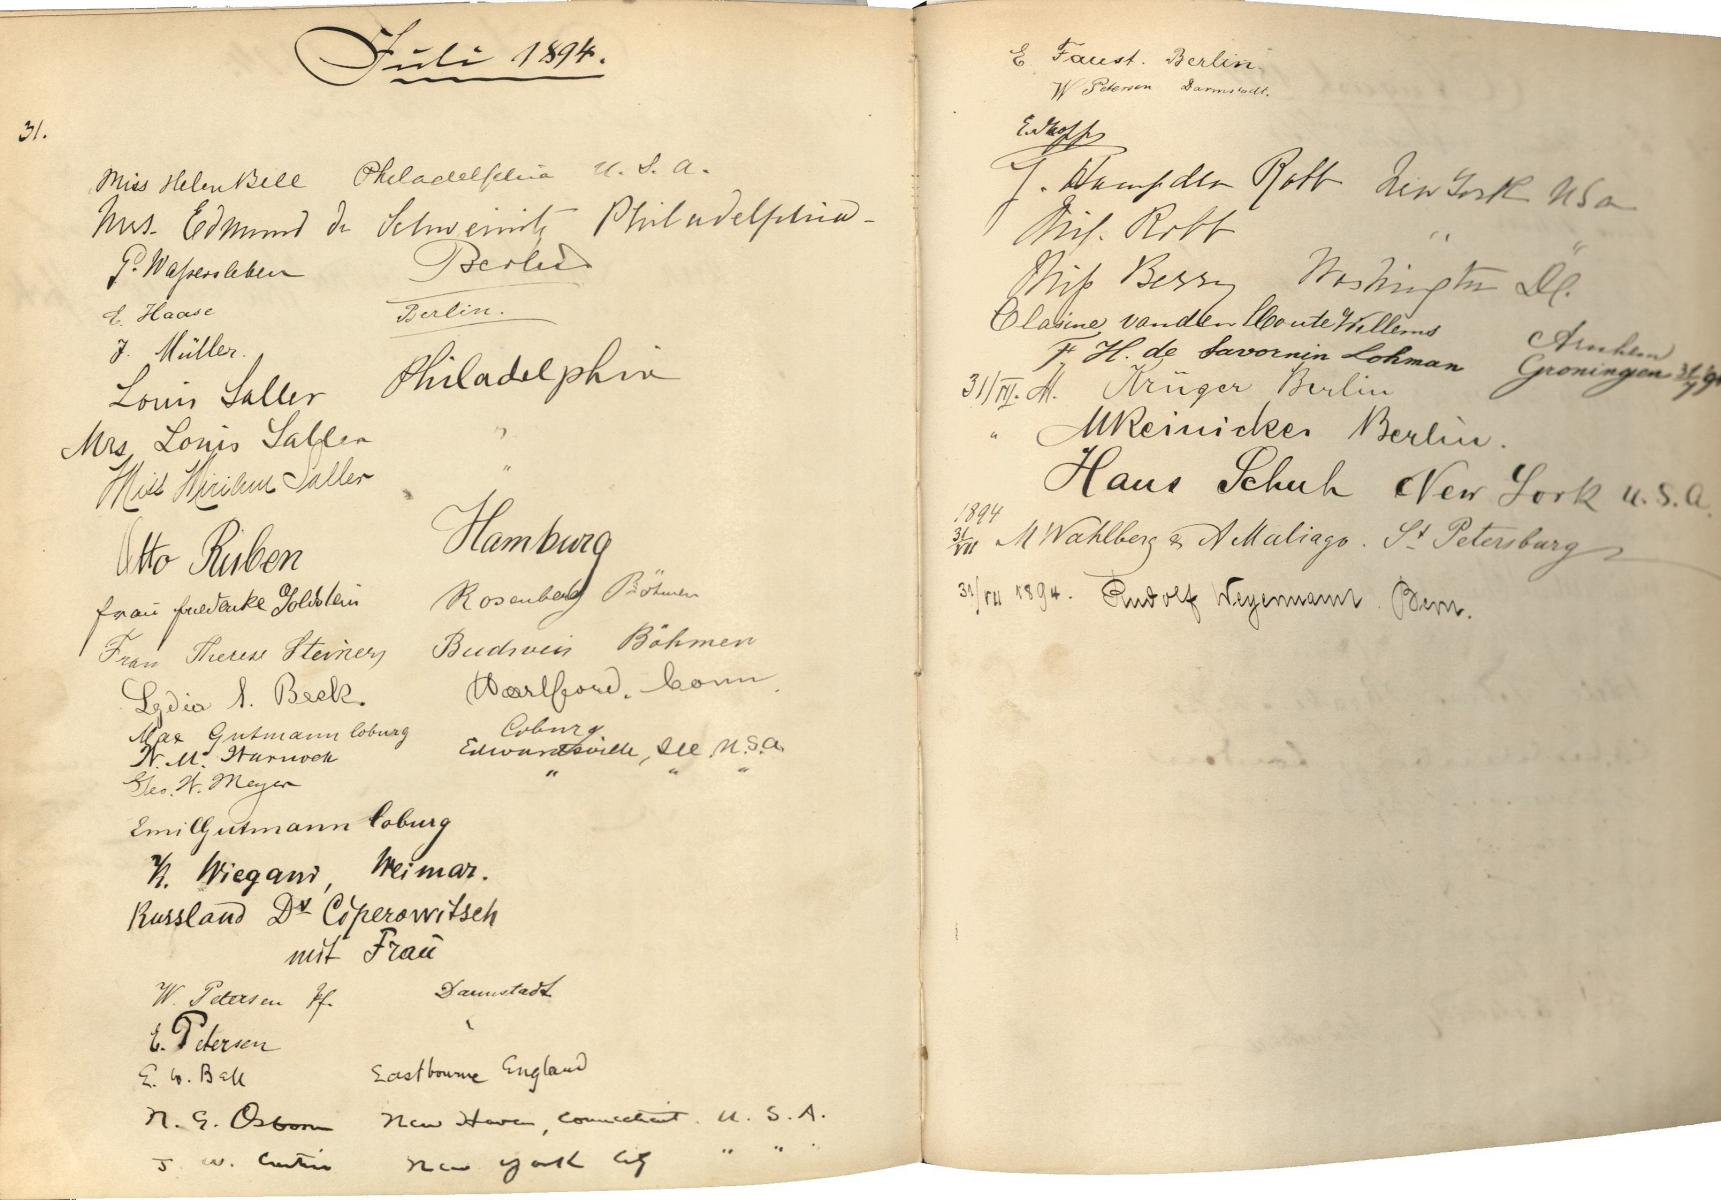 Juli 1894.
31.
Miss Helen Bell Philadelphia U. S. A.
Mrs. Edmund de Schweinitz Philadelphia -
P. Waßersleben Berlin
E. Haase Berlin.
J. Müller.
Louis Saller Philadelphia
Mrs Louis Saller "
Miss Miriam Saller "
Otto Ruben Hamburg
Frau Friederike Goldstein Rosenberg Böhmen
Frau Therese Steiner Budweis Böhmen
Lydia A. Beck. Hartford. Conn.
Max Gutmann Coburg Coburg.
N. M. Warnock Edwardsville, Ill U.S.A
Geo. W. Meyer " " "
Emil Gutmann Coburg
K. Wiegand, Weimar.
Russland Dr Coperowitsch
mit Frau
W. Petersen Pf. Darmstadt
E. Petersen "
E. W. Ball Eastbourne England
N. G. Osborn New Haven, Connecticut. U. S. A.
J. W. Curtis New York City " "
E Faust. Berlin.
W Petersen Darmstadt.
J. Hampden Robb New York USa
Mrs. Robb " "
Miss Berry Washington DC.
Clasine van den Honte Willems Arnhem
F. H. de Savornin Lohman Groningen 31/7 94
31/VII. A. Krüger Berlin
" M Reinicker Berlin.
Hans Schuh New York U. S. A.
1894
31/VII M Wahlberg & A Maliago. St Petersburg
31/VII 1894. Rudolf Wegermann. Bern.